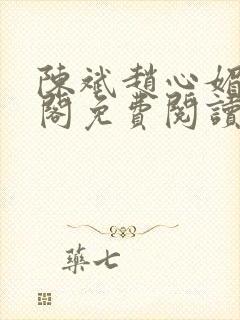 陳斌趙心媚
閣免費閱讀
藥七